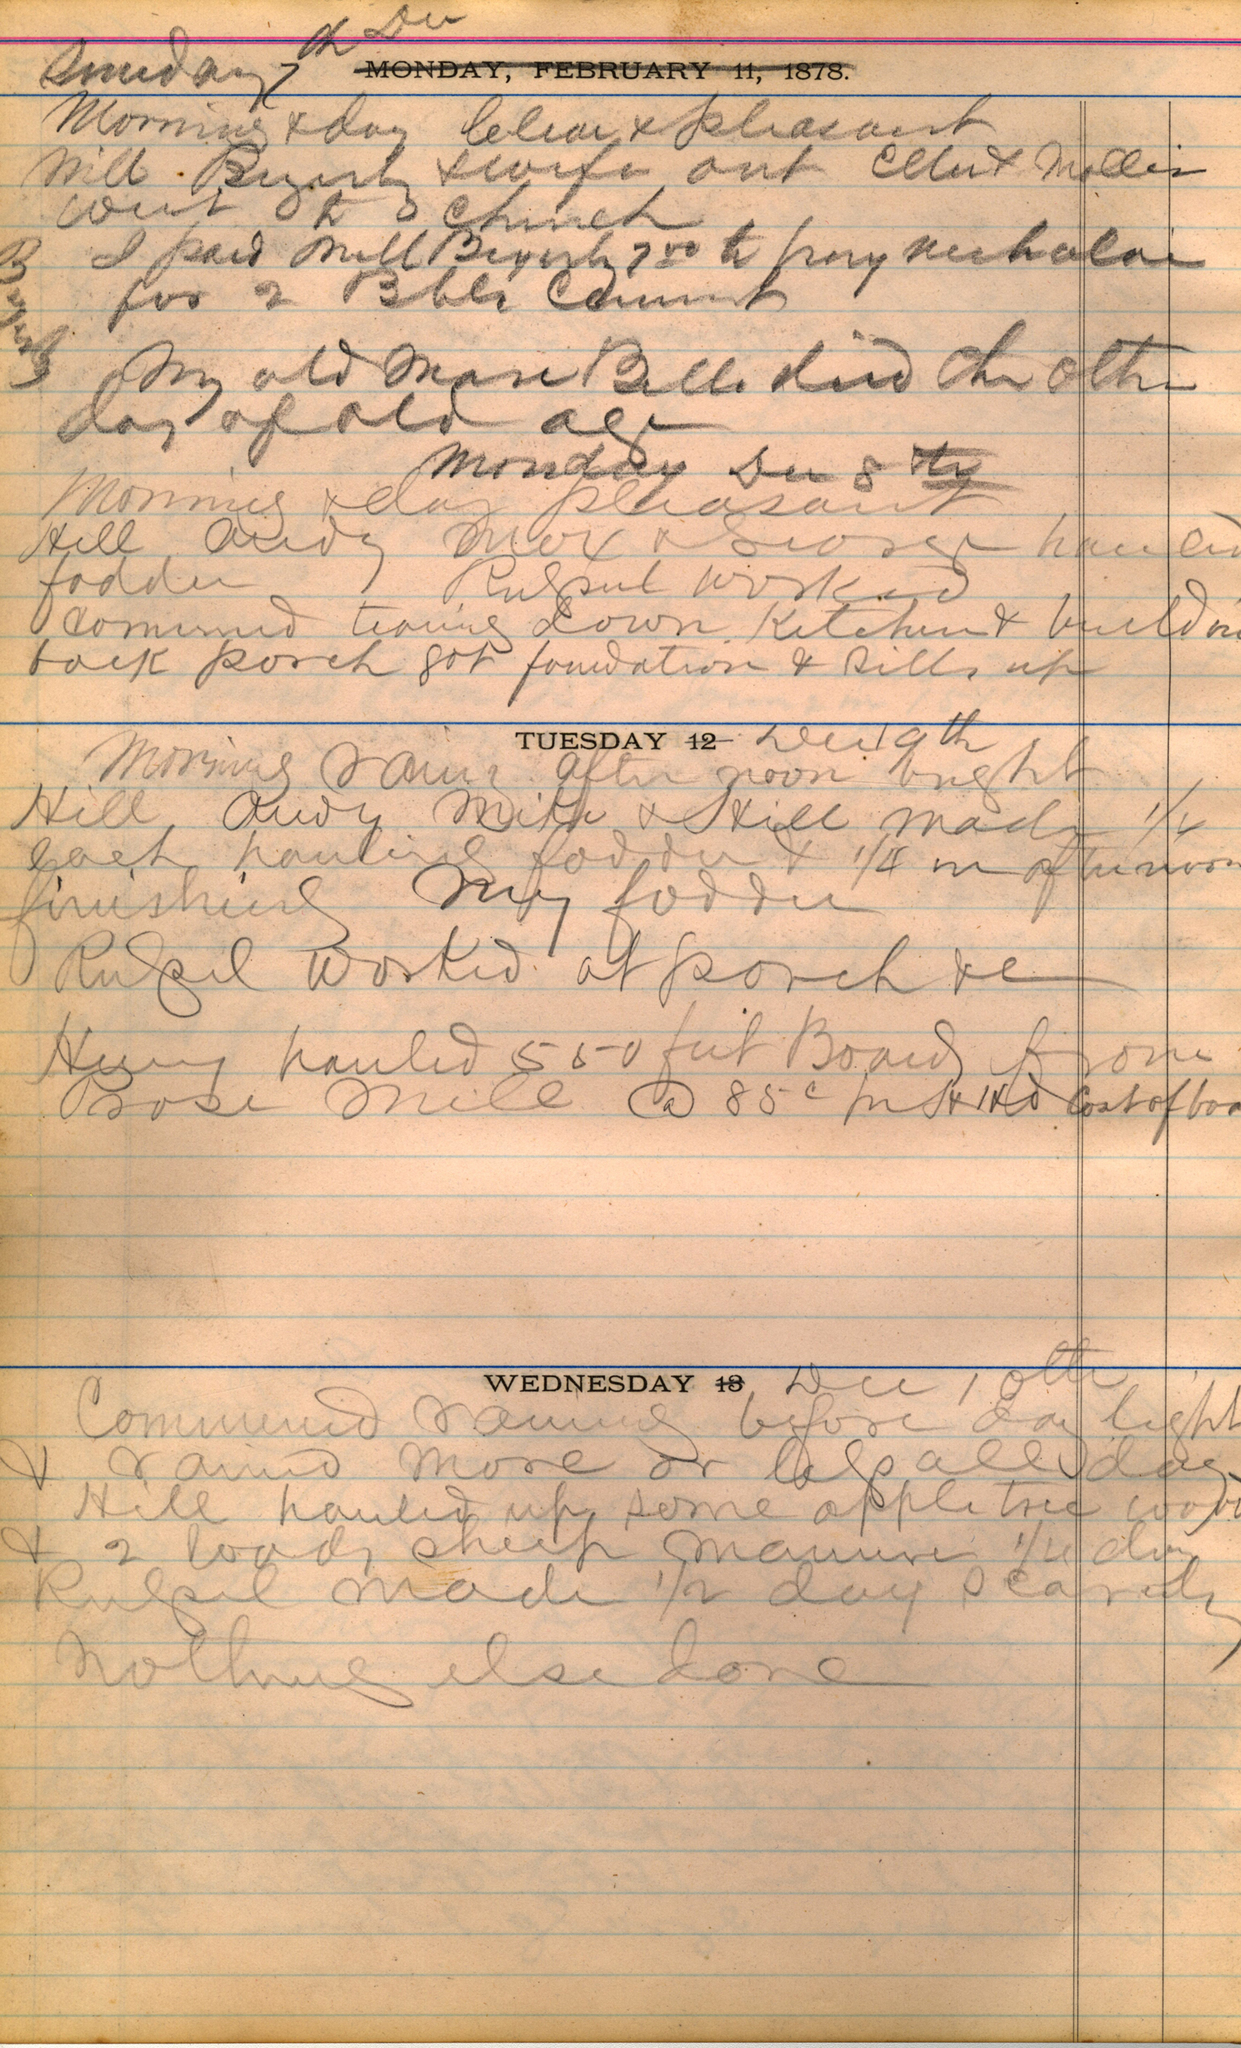 Sunday 7th Dec
MONDAY, FEBRUARY 11, 1878.
Morning & day Clear & pleasant
Will Beverly & wife out Ellen & Mollie
went to Church
I paid Will Beverly 7.00 to pay
for 2 Bible
Beverly
My old Mare Belle died the other
day of old age
Monday Dec 8th
Morning & day pleasant
Hill Andy Mox & George hauled
fodder Russel worked
commend tearing down Kitchen & building
back porch got foundation & sills up
TUESDAY 12 Dec 9th
Morning rainy after noon bright
Hill Andy Mike & Still made 1/4
each hauling fodder & 1/4 in afternoon
finishing my fodder
Russel worked at porch &c
Henry hauled 550 feet Boards from
Rose Mill @ 85c per Cost of boa
WEDNESDAY 13 Dec 10th
Commend raining before day light
& rained more or less all day
Hill hauled up some apple tree wood
& 2 loads sheep manure 1/4 day
Russel made 1/2 day scarcely
nothing else done